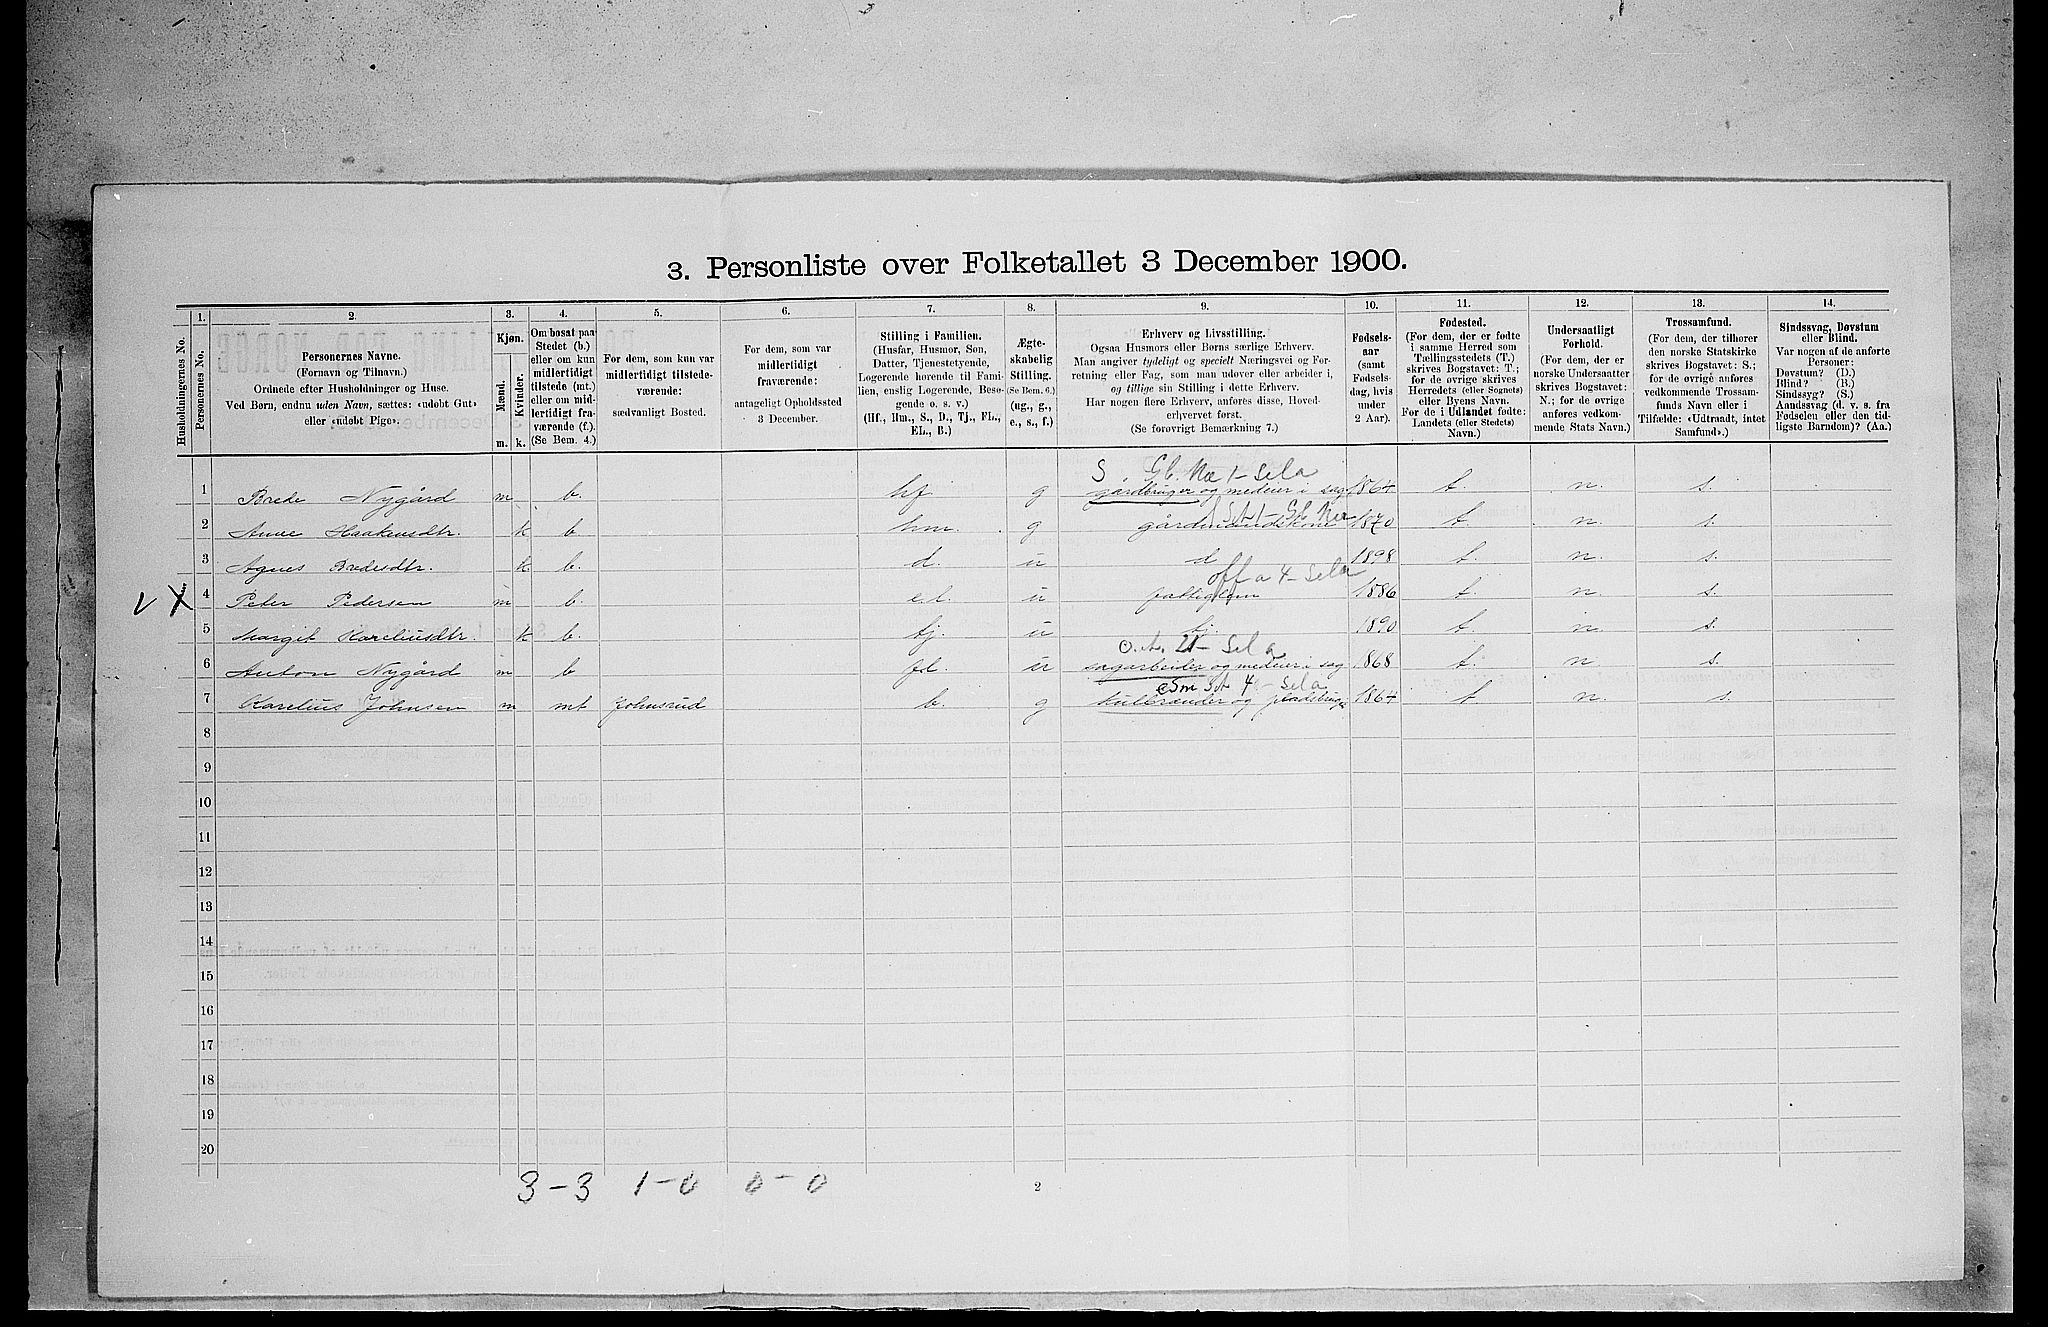 3. Personliste over Folketallet 3 December 1900.
1. 2. 3. 4. 5. 6. 7. 8. 9. 10. 11. 12. 13. 14.
Husholdningernes No.
Personernes No.
Personernes Navne.
(Fornavn og Tilnavn.)
Ordnede efter Husholdninger og Huse.
Ved Børn, endnu uden Navn, sættes: «udøbt Gut»
eller «udøbt Pige».
Kjøn.
Mænd.
Kvinder.
m. k.
Om bosat paa
Stedet (b.)
eller om kun
midlertidigt
tilstede (mt.)
eller om mid-
lertidigt fra-
værende (f.).
(Se Bem. 4.)
For dem, som kun var
midlertidigt tilstede-
værende:
sædvanligt Bosted.
For dem, som var
midlertidigt
fraværende:
antageligt Opholdssted
3 December.
Stilling i Familien.
(Husfar, Husmor, Søn,
Datter, Tjenestetyende,
Logerende hørende til Fami-
lien, enslig Logerende, Besø-
gende o. s. v.)
(Hf., Hm., S., D., Tj., FL.,
EL., B.)
Ægte-
skabelig
Stilling.
(Se Bem. 6.)
(ug., g.,
e., s., f.)
Erhverv og Livsstilling.
Ogsaa Husmors eller Børns særlige Erhverv.
Man angiver tydeligt og specielt Næringsvei og For-
retning eller Fag, som man udøver eller arbeider i,
og tillige sin Stilling i dette Erhverv.
Har nogen flere Erhverv, anføres disse, Hoved-
erhvervet først.
(Se forøvrigt Bemærkning 7.)
Fødsels-
aar
(samt
Fødsels-
dag, hvis
under
2 Aar).
Fødested.
(For dem, der er fødte
i samme Herred som
Tællingsstedets (T.)
skrives Bogstavet: T.;
for de øvrige skrives
Herredets (eller Sognets)
eller Byens Navn.
For de i Udlandet fødte:
Landets (eller Stedets)
Navn.)
Undersaatligt
Forhold.
(For dem, der er
norske Undersaatter
skrives Bogstavet:
N.; for de øvrige
anføres vedkom-
mende Stats Navn.)
Trossamfund.
(For dem, der tilhører
den norske Statskirke
skrives Bogstavet: S.;
for de øvrige anføres
vedkommende Trossam-
funds Navn eller i
Tilfælde: «Udtraadt, intet
Samfund».)
Sindssvag, Døvstum
eller Blind.
Var nogen af de anførte
Personer:
Døvstum? (D.)
Blind? (B.)
Sindssyg? (S.)
Aandssvag (d. v. s. fra
Fødselen eller den tid-
ligste Barndom)? (Aa.)
S. Gb. 1 - Sela
1 Brede Nygård m b. hf. g gårdbruger og medeier i sag 1864 t. n. s.
2 Anne Haakensdtr. k b hm. g gårdmandskone 1870 t. n. s.
3 Agnes Bredesdtr. k b. d. u d 1898 t. n. s.
off a 4 - Sela
4 Peter Pedersen m b. e.l. u fattiglem 1886 t. n. s.
5 Margit Kareliusdtr. k b. tj. u tj. 1890 t. n. s.
- Sela
6 Anton Nygård m b fl. u sagarbeider og medeier i sag 1868 t. n. s.
4 - Sela
7 Karelius Johnsen m mt Johnsrud b. g kulbrænder og pladsbruger 1864 t. n. s.
8
9
10
11
12
13
14
15
16
17
18
19
20
3-3 1-0 0-0
2